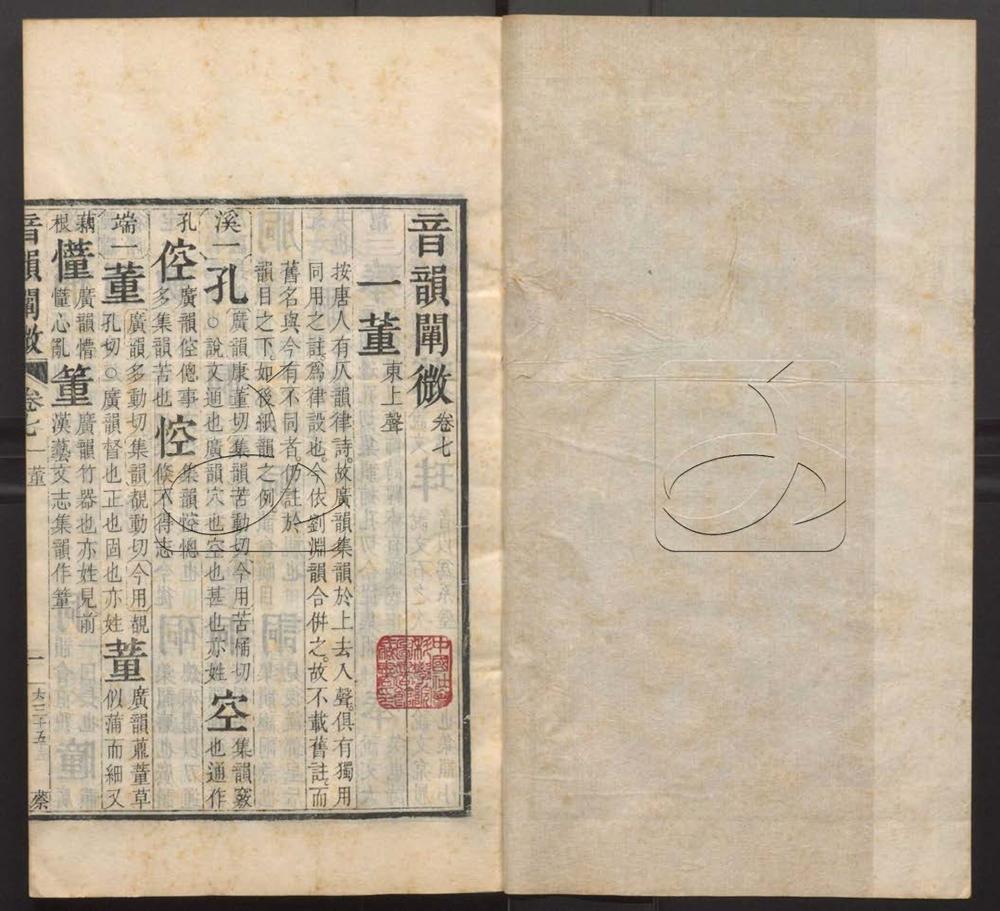 音韻闡微卷七
一董東上聲
按唐人有仄韻律詩故廣韻集韻於上去入聲俱有獨用
同用之註爲律設也今依劉淵韻合併之故不載舊註而
舊名與今有不同者仍註於
韻目之下如後紙韻之例
溪一孔廣韻康董切集韻苦動切今用苦桶切
○說文通也廣韻穴也空也甚也亦姓空集韻竅
也通作
孔倥廣韻倥傯事
多集韻苦也悾集韻悾憁
倐不得志
端一董廣韻多動切集韻覩動切今用覩
孔切○廣韻督也正也固也亦姓蕫廣韻薡蕫草
似蒲而細又
藕
根懂廣韻懵
懂心亂箽廣韻竹器也亦姓見前
漢藝文志集韻作䈏
音韻闡微 卷七 一董 一 蔡